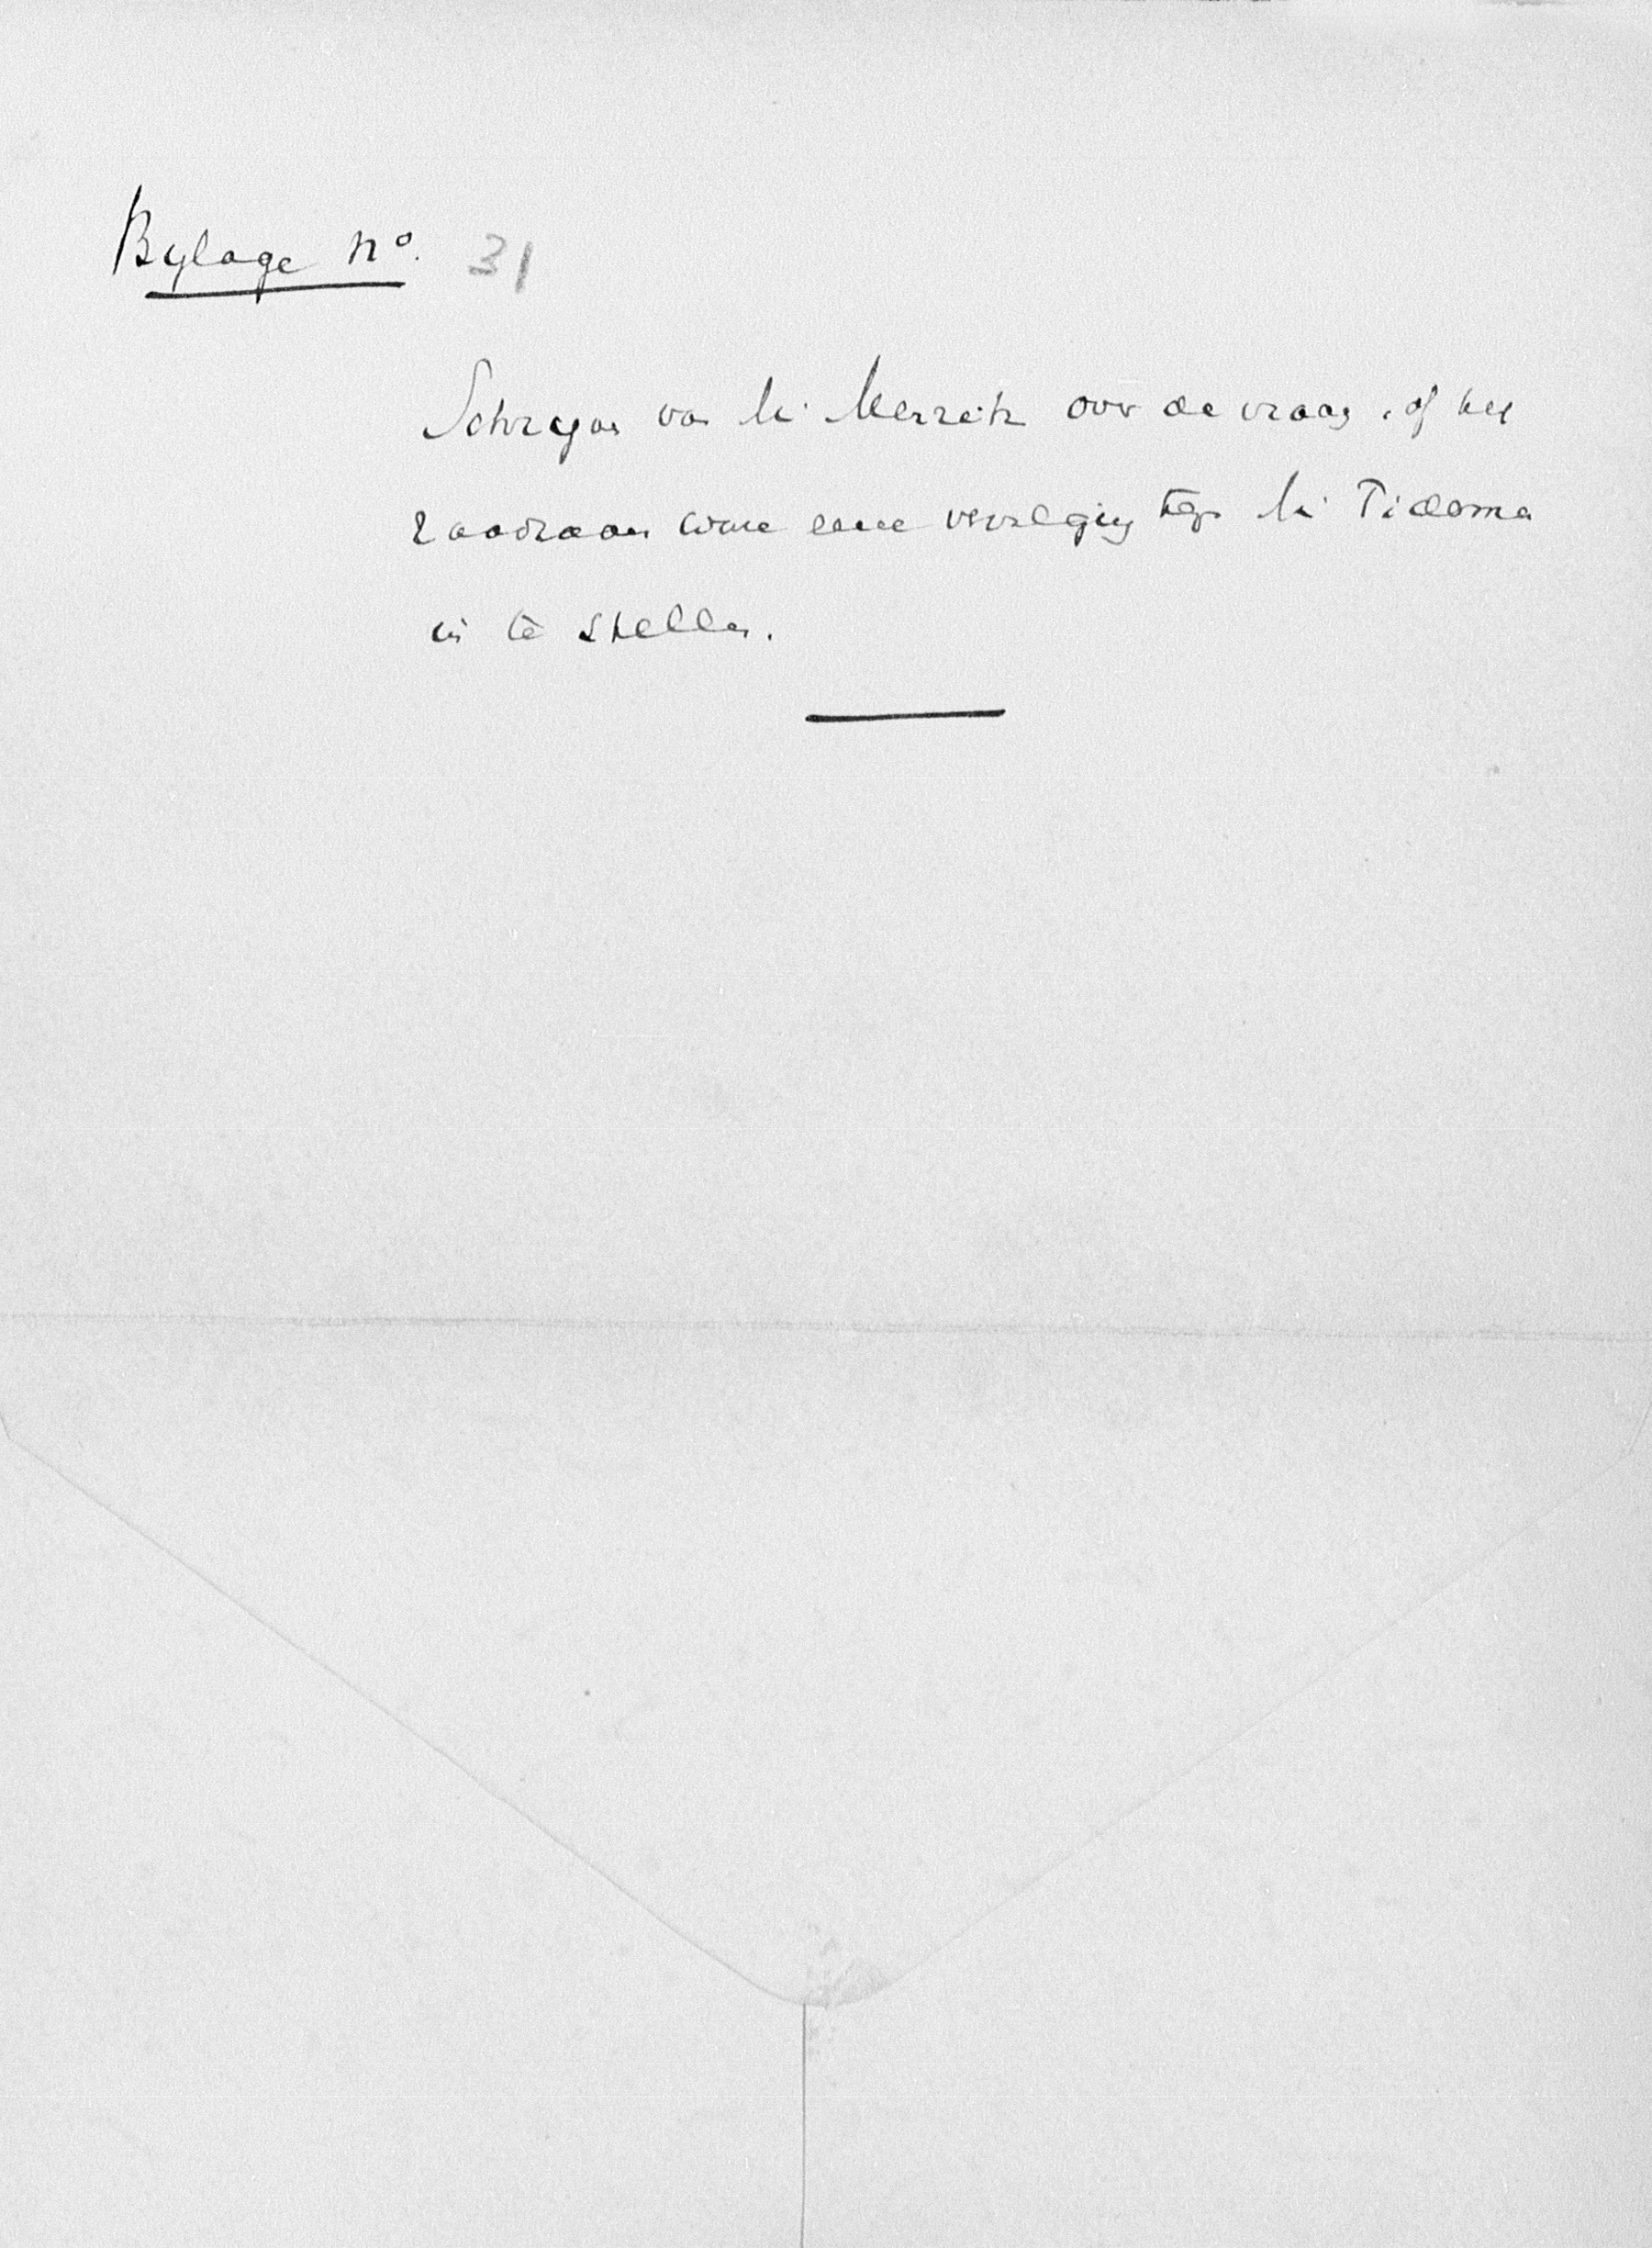 Bylage no. 31
Schryven van Mr. Merrits over de vraag, of het
raadzaam ware eene vervolging tegen Mr Tideema
in te stellen.